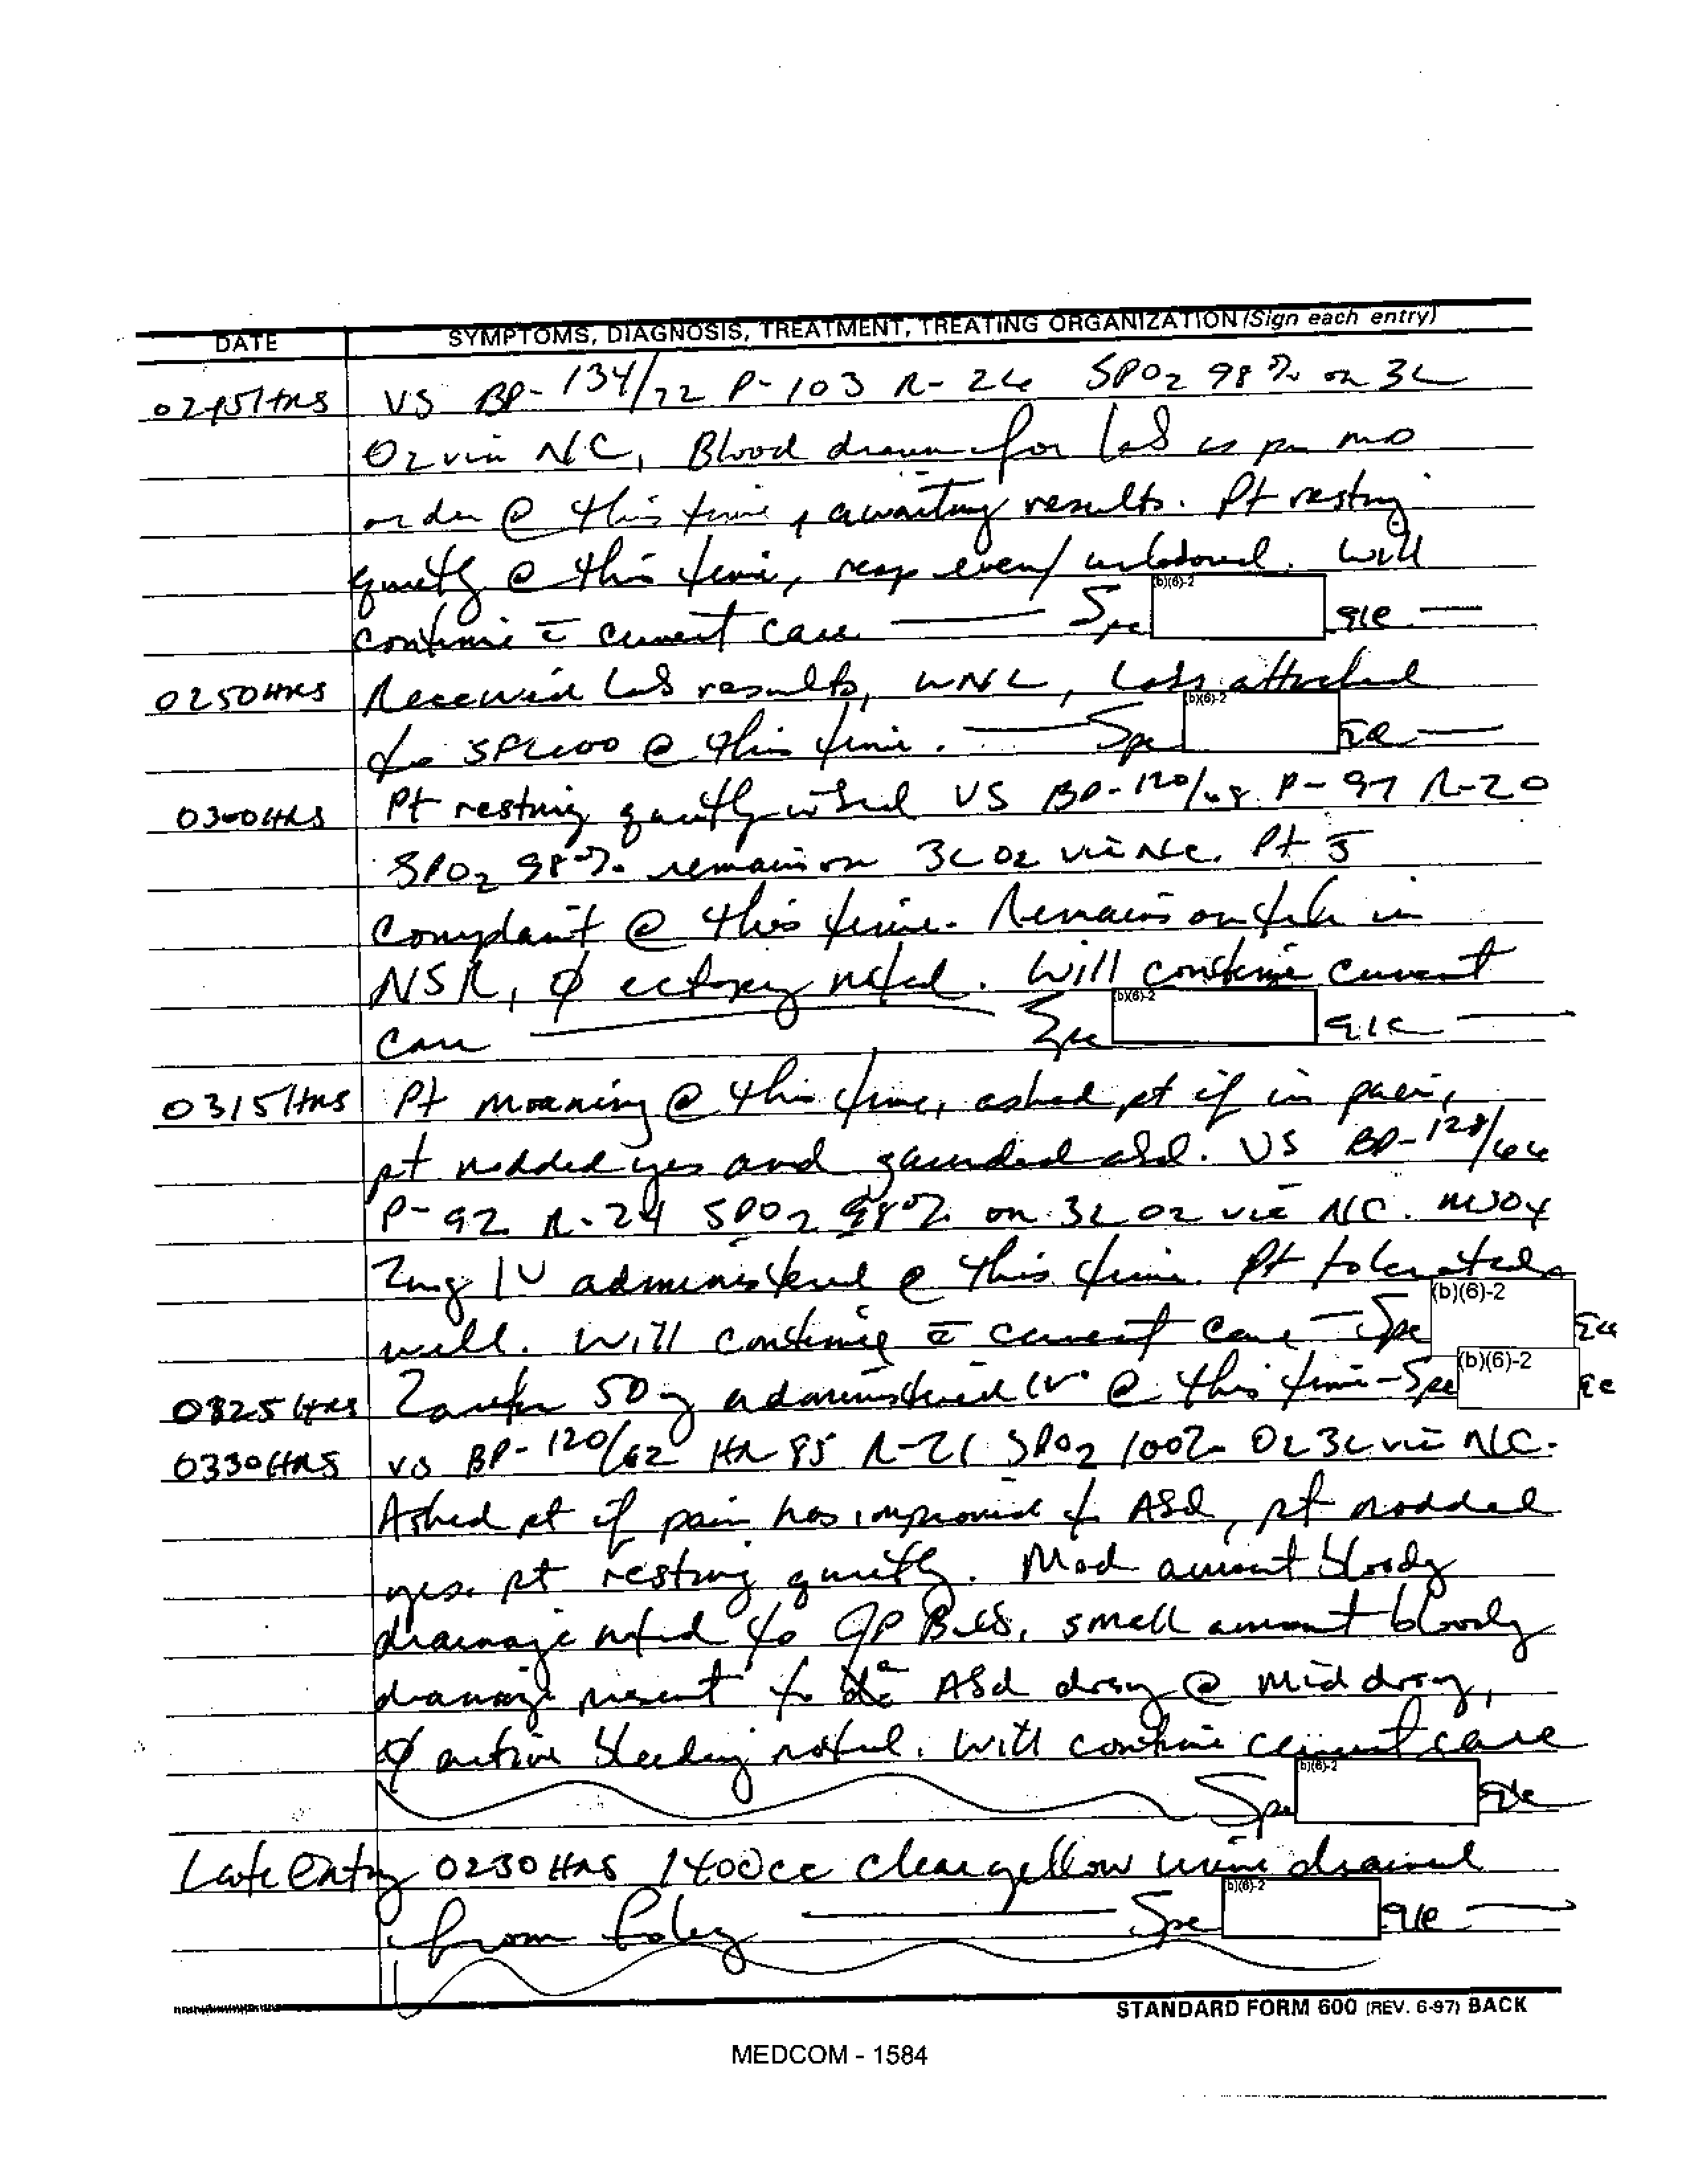 DATE SYMPTOMS, DIAGNOSIS, TREATMENT, TREATING ORGANIZATION (Sign each entry)
0245HRS VS BP- 134/72 P- 103 R- 24 SPO2 98% on 3L
O2 via NC, Blood drawn for lab as per MO
order @ this time, awaiting results. Pt resting
quietly @ this time, resp even/unlabored. Will
continue c̄ current care Spc (b)(6)-2 91C
0250HRS Received lab results, WNL, Labs attached
to SF600 @ this time. Spc (b)(6)-2
0300HRS Pt resting quietly in bed VS BP- 120/68 P- 97 R-20
SPO2 98% remains on 3L O2 via NC. Pt s̄
complaint @ this time. Remains on tele in
NSR, ∅ ectopy noted. Will continue current
care Spc (b)(6)-2 91C
0315HRS Pt moaning @ this time, asked pt if in pain,
pt nodded yes and guarded abd. VS BP- 128/64
P- 92 R- 24 SPO2 98% on 3L O2 via NC. MSO4
2mg IV administered @ this time. Pt tolerated
well. Will continue c̄ current care Spc (b)(6)-2
0325HRS Zantac 50mg administered IV @ this time - Spc (b)(6)-2
0330HRS VS BP- 120/62 HR 85 R-21 SPO2 100% O2 3L via NC.
Asked pt if pain has improved to Abd, pt nodded
yes. pt resting quietly. Mod amount bloody
drainage noted to JP Bulb, small amount bloody
drainage present to Abd drsg @ mid drsg,
∅ active bleeding noted. Will continue current care
Spc (b)(6)-2
Late Entry 0230 HRS 1400cc clear yellow urine drained
from foley Spc (b)(6)-2 91C
STANDARD FORM 600 (REV. 6-97) BACK
MEDCOM - 1584